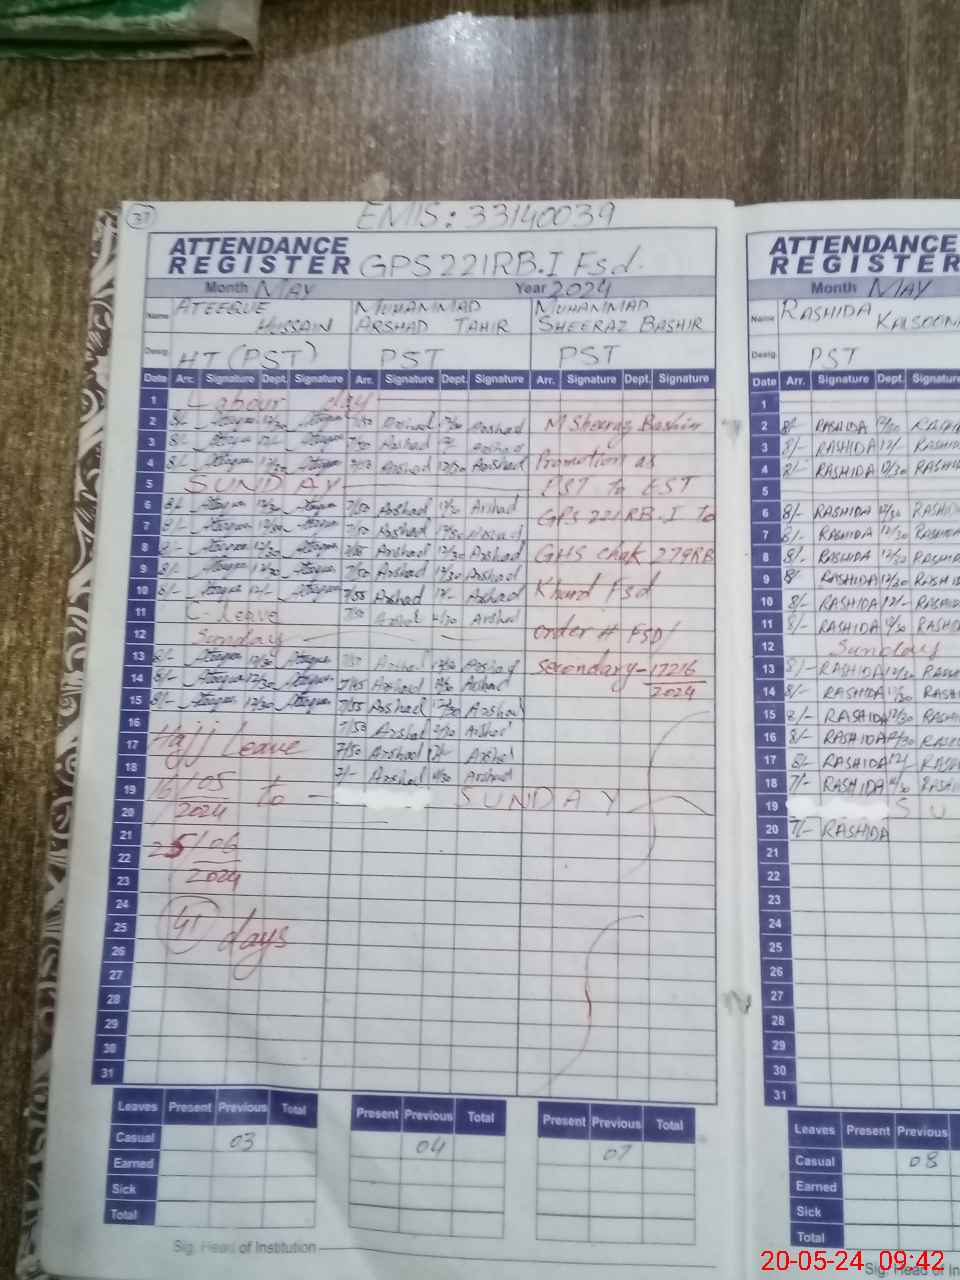 37
EMIS: 33140039
ATTENDANCE
REGISTER GPS 221RB.I Fsd.
Month MAY Year 2024
Name ATEEQUE HUSSAIN MUHAMMAD ARSHAD TAHIR MUHAMMAD SHEERAZ BASHIR
Desig. HT (PST) PST PST
Date Arr. Signature Dept. Signature Arr. Signature Dept. Signature Arr. Signature Dept. Signature
1 Labour day
2 8/- Ateeque 12/30 Ateeque 7/50 Arshad 12/30 Arshad M Sheeraz Bashir
3 8/- Ateeque 12/- Ateeque 7/50 Arshad 12/- Arshad
4 8/- Ateeque 12/30 Ateeque Arshad 12/30 Arshad Promotion as
5 SUNDAY PST to EST
6 8/- Ateeque 12/30 Ateeque 7/50 Arshad 12/30 Arshad GPS 221RB.I to
7 8/- Ateeque 12/30 Ateeque 7/50 Arshad 12/30 Arshad
8 8/- Ateeque 12/30 Ateeque 7/55 Arshad 12/30 Arshad GHS chak 279RB
9 8/- Ateeque 12/30 Ateeque 7/50 Arshad 12/30 Arshad
10 8/- Ateeque 12/- Ateeque 7/55 Arshad 12/- Arshad Khurd Fsd
11 C-Leave 7/50 Arshad 12/30 Arshad
12 Sunday order # FSD/
13 8/- Ateeque 12/30 Ateeque Arshad 12/30 Arshad Secondary-17216
14 8/- Ateeque 12/30 Ateeque 7/45 Arshad 12/30 Arshad 2024
15 8/- Ateeque 12/30 Ateeque 7/55 Arshad 12/30 Arshad
16 7/50 Arshad 12/30 Arshad
17 Hajj Leave 7/50 Arshad 12/- Arshad
18 7/- Arshad 11/30 Arshad
19 16/05 to - SUNDAY
20 2024
21
22 25/06
23 2024
24
25 41 days
26
27
28
29
30
31
Leaves Present Previous Total Present Previous Total Present Previous Total
Casual 03 04 07
Earned
Sick
Total
Sig. Head of Institution
ATTENDANCE
REGISTER
Month MAY
Name RASHIDA KALSOOM
Desig. PST
Date Arr. Signature Dept. Signature
1
2 8/- RASHIDA 12/30 RASHIDA
3 8/- RASHIDA 12/- RASHIDA
4 8/- RASHIDA 12/30 RASHIDA
5
6 8/- RASHIDA 12/30 RASHIDA
7 8/- RASHIDA 12/30 RASHIDA
8 8/- RASHIDA 12/30 RASHIDA
9 8/- RASHIDA 12/30 RASHIDA
10 8/- RASHIDA 12/- RASHIDA
11 8/- RASHIDA 12/30 RASHIDA
12 Sunday
13 8/- RASHIDA 12/30 RASHIDA
14 8/- RASHIDA 12/30 RASHIDA
15 8/- RASHIDA 12/30 RASHIDA
16 8/- RASHIDA 12/30 RASHIDA
17 8/- RASHIDA 12/- RASHIDA
18 7/- RASHIDA 11/30 RASHIDA
19 S U
20 7/- RASHIDA
21
22
23
24
25
26
27
28
29
30
31
Leaves Present Previous
Casual 08
Earned
Sick
Total
Sig. Head of In
20-05-24 09:42